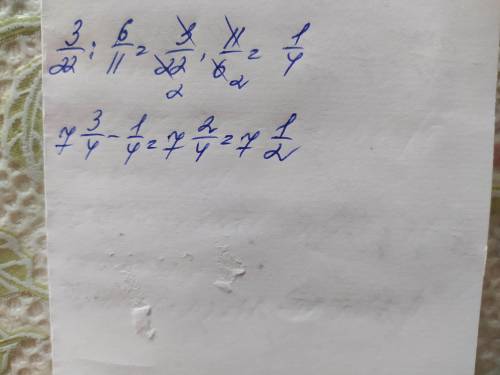 3/22 : 6/11 = 3/22 · 11/6 = 1/4
2 2
7 3/4 - 1/4 = 7 2/4 = 7 1/2